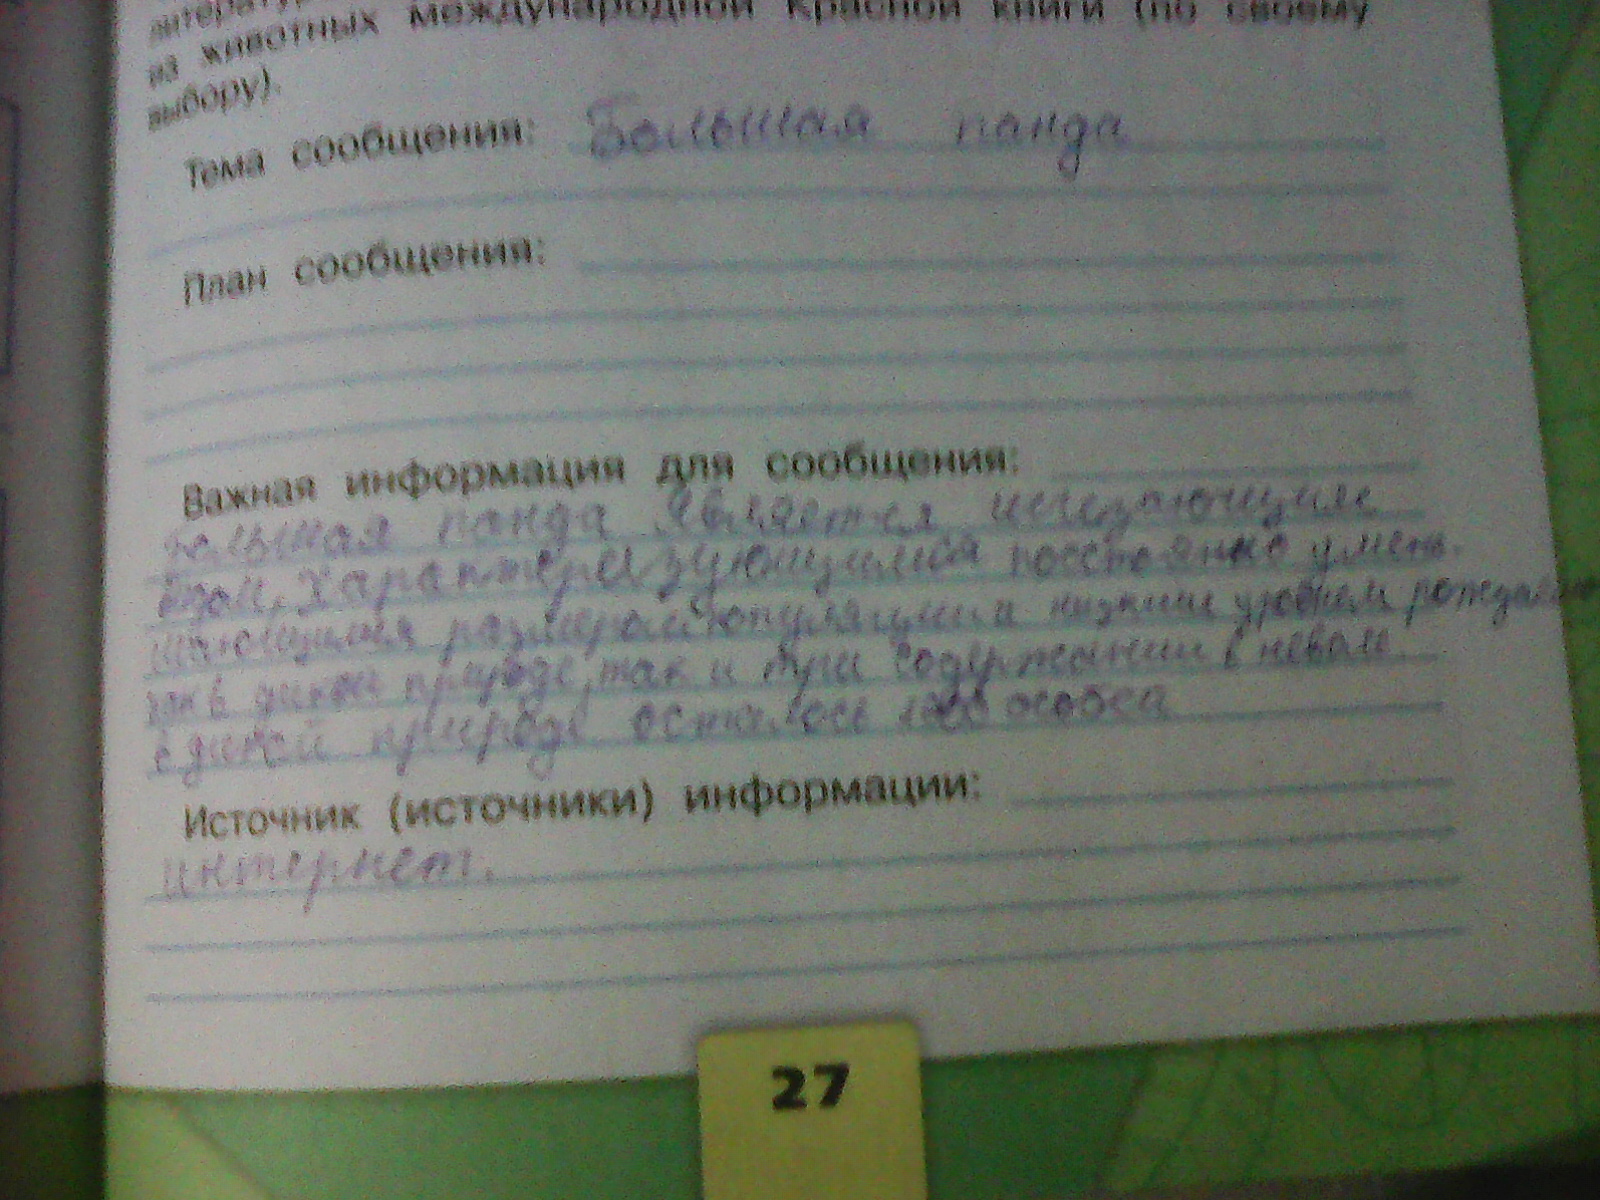 из животных международной Красной книги (по своему
выбору).
Тема сообщения: Большая панда
План сообщения:
Важная информация для сообщения:
Большая панда является исчезающим
видом, характеризующимся постоянно умень-
шающимся размером популяции и низким уровнем рождаемо
как в дикой природе, так и при содержании в неволе.
в дикой природе осталось особей
Источник (источники) информации:
интернет.
27